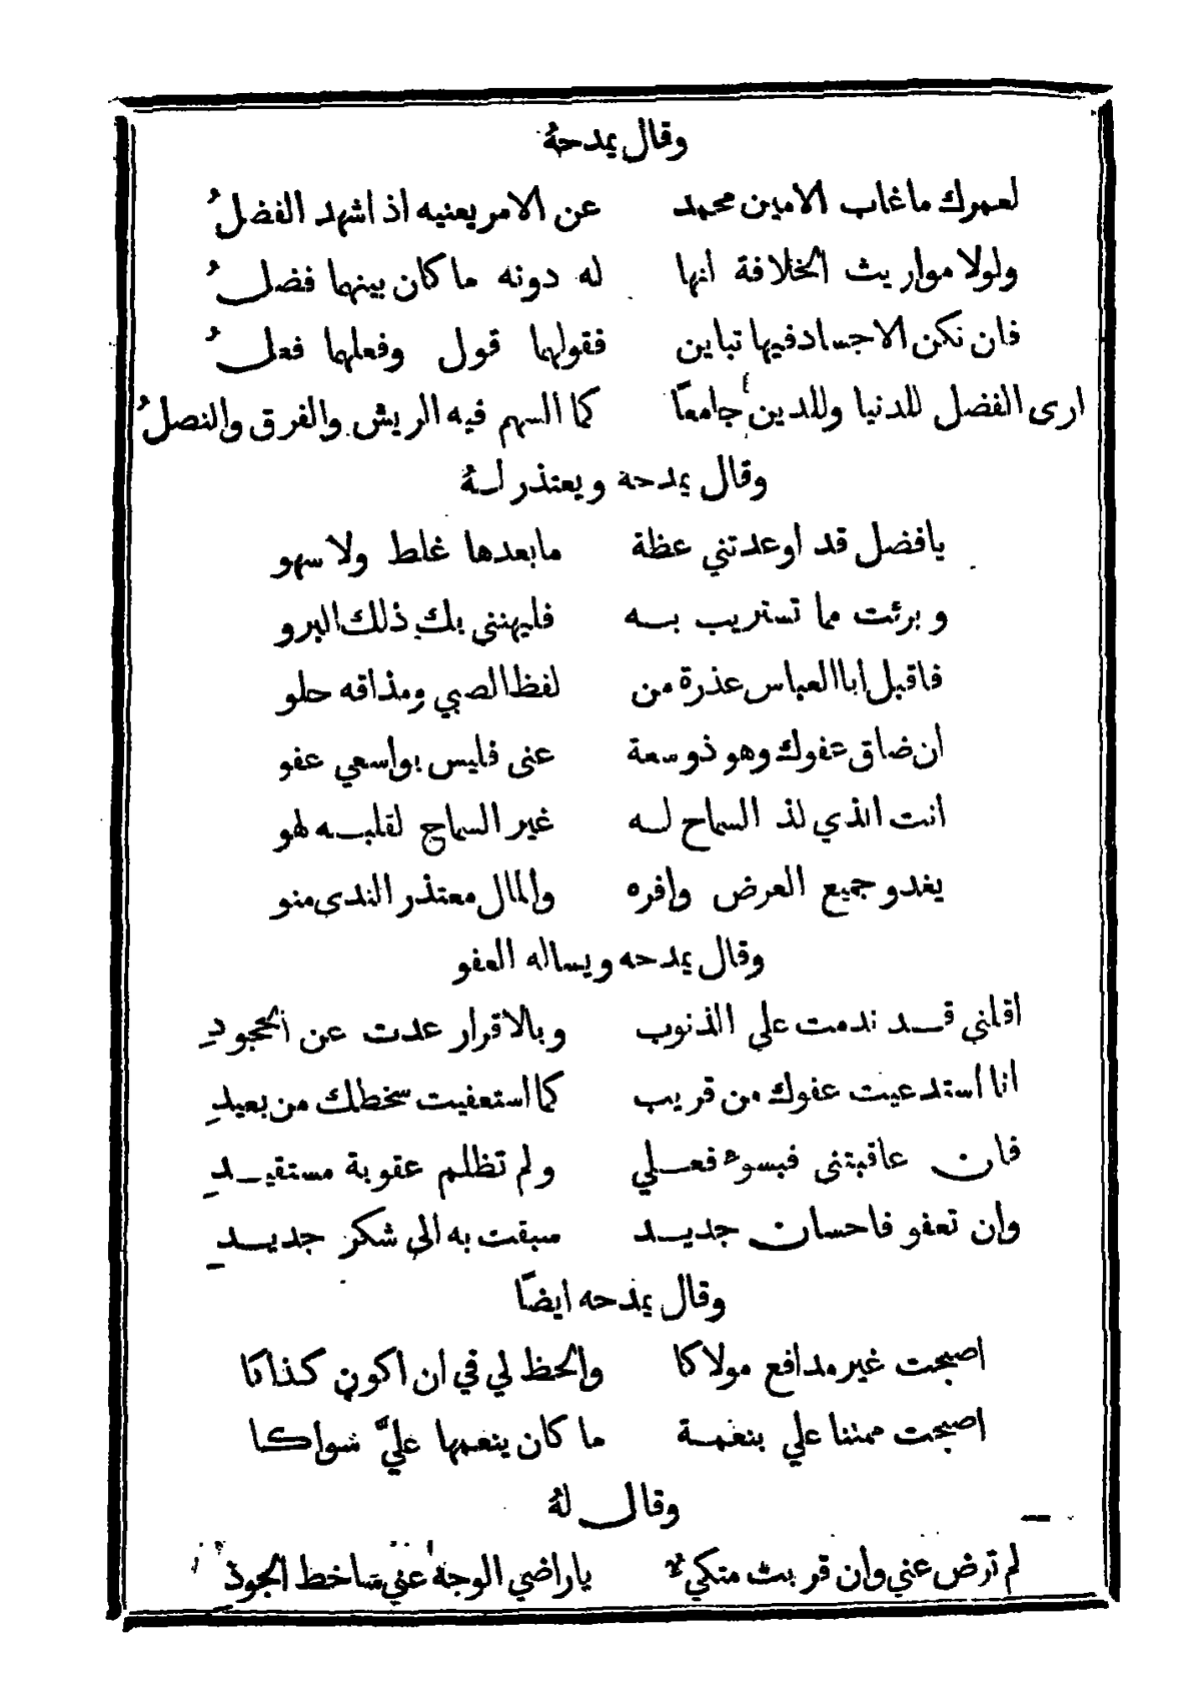 وقال يمدحهُ
لعمرك ماغاب الامين محمد عن الامر يعنيه اذ اشهد الفضلُ
ولولا مواريث الخلافة انها له دونه ماكان بينهما فضلُ
فان نكن الاجسادفيها تباين فقولهما قول وفعلهما فعلُ
ارى الفضل للدنيا وللدين جامعًا كما السهم فيه الريش والفرق والنصلُ
وقال يمدحه ويعتذر لهُ
يافضل قد اوعدتني عظة مابعدها غلط ولا سهو
وبرئت مما تستريب به فليهنني بك ذلك البرو
فاقبل اباالعباس عذرة من لفظ الصبي ومذاقه حلو
ان ضاق عفوك وهو ذوسعة عنى فليس بواسعي عفو
انت الذي لذ السماح له غير السماح لقلبه لهو
يغدو جميع العرض وافره والمال معتذر الندى منو
وقال يمدحه ويساله العفو
اقلني قد ندمت علي الذنوب وبالاقرار عدت عن الجحودِ
انا استدعيت عفوك من قريب كما استعفيت سخطك من بعيدِ
فان عاقبتنى فبسوء فعلي ولم تظلم عقوبة مستقيدِ
وان تعفو فاحسان جديد سبقت به الى شكر جديدِ
وقال يمدحه ايضًا
اصبحت غير مدافع مولاكا والحظ لي في ان اكون كذاكا
اصبحت ممتنا علي بنعمة ما كان ينعمها عليَّ سواكا
وقال لهُ
لم ترض عني وان قربت متكي ياراضي الوجه عني ساخط الجود